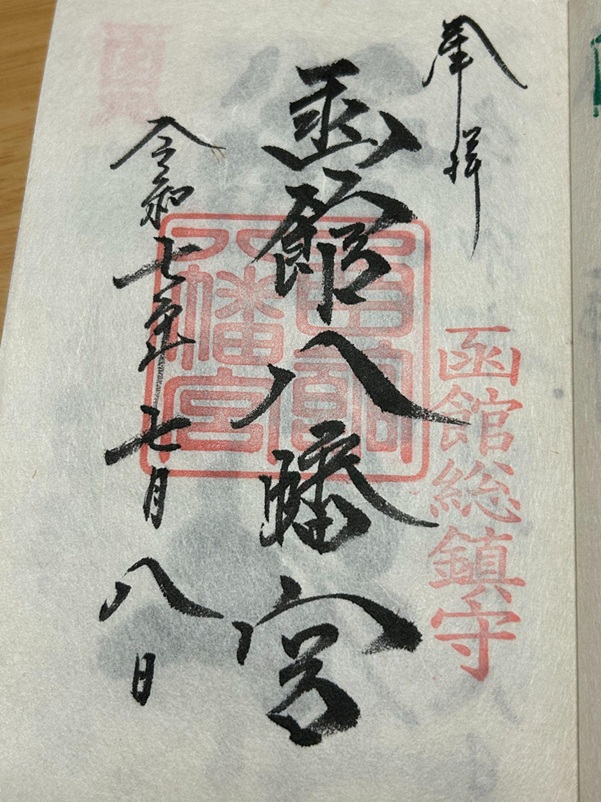 奉拝
函館総鎮守
函館八幡宮
函館八幡宮
令和七年七月八日